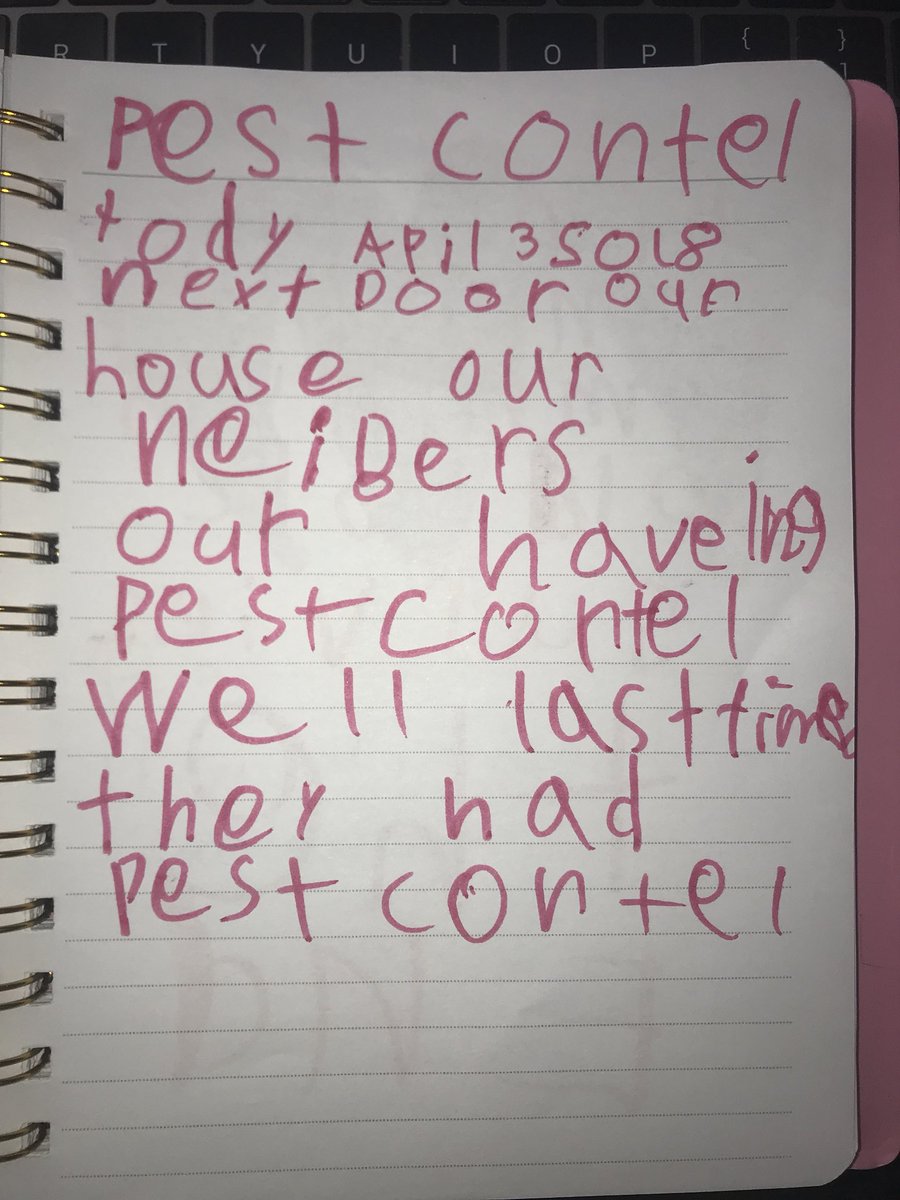 R T Y U I O P { } ]
Pest contel
tody April 3 5018
next Door our
house our
neiBers
our haveing
Pest contel
Well last time
they had
Pest contel